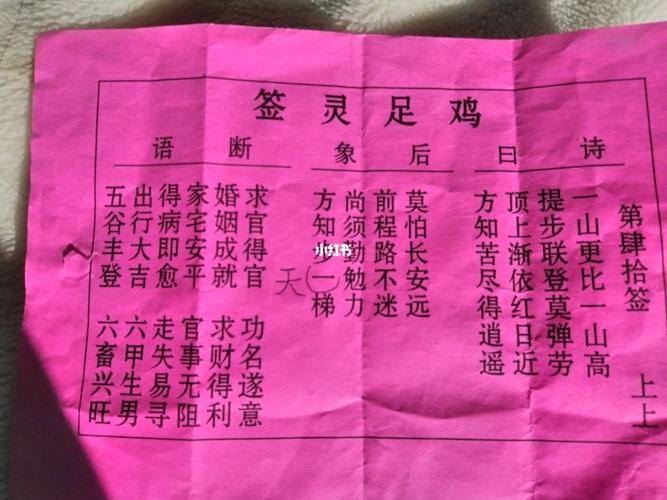 鸡足灵签
第肆拾签 上上
诗曰
一山更比一山高
提步联登莫弹劳
顶上渐依红日近
方知苦尽得逍遥
后象
莫怕长安远
前程路不迷
尚须勤勉力
方知一梯
天
断语
求官得官 功名遂意
婚姻成就 求财得利
家宅安平 官事无阻
得病即愈 走失易寻
出行大吉 六甲生男
五谷丰登 六畜兴旺
小红书